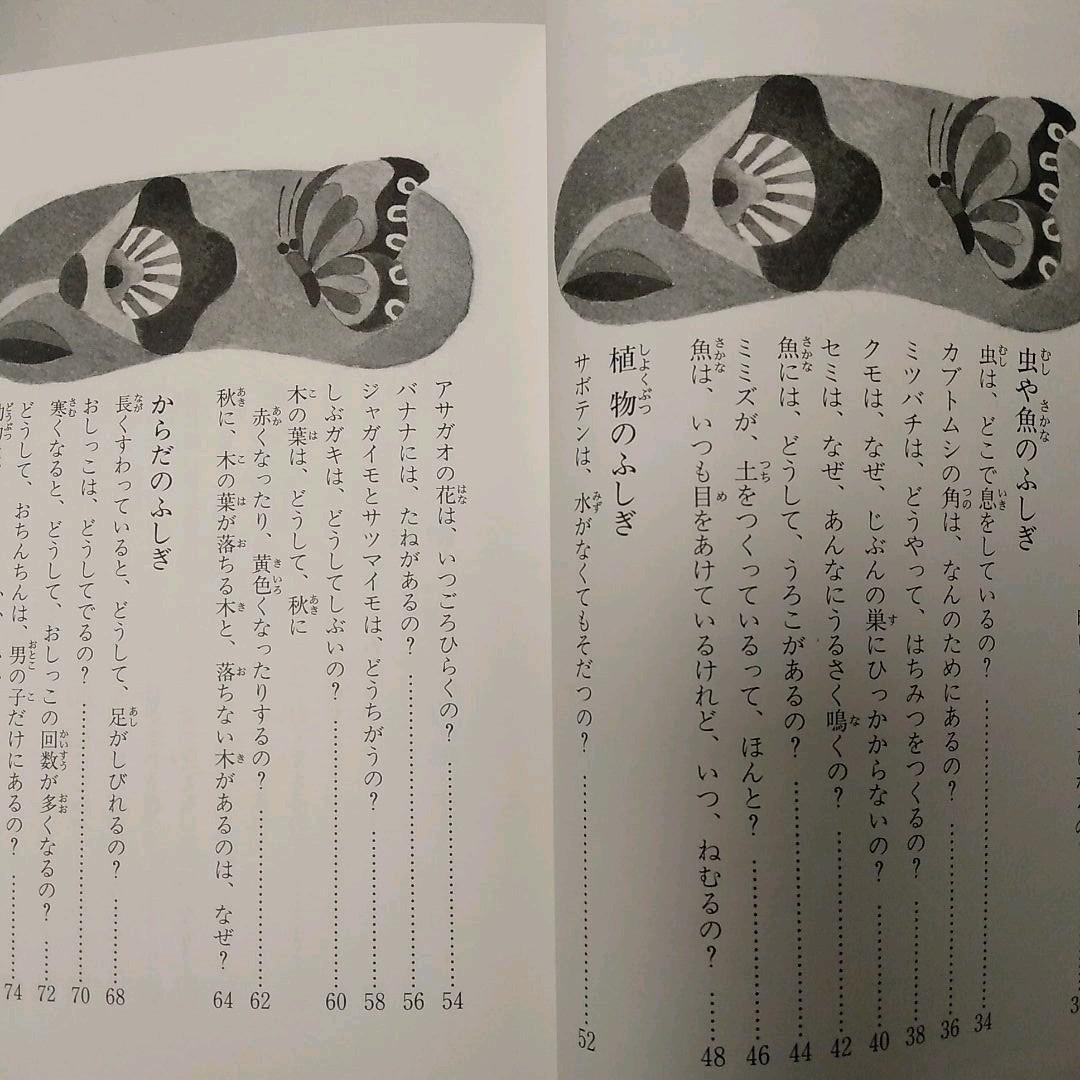 虫や魚のふしぎ
虫は、どこで息をしているの?……34
カブトムシの角は、なんのためにあるの?……36
ミツバチは、どうやって、はちみつをつくるの?……38
クモは、なぜ、じぶんの巣にひっかからないの?……40
セミは、なぜ、あんなにうるさく鳴くの?……42
魚には、どうして、うろこがあるの?……44
ミミズが、土をつくっているって、ほんと?……46
魚は、いつも目をあけているけれど、いつ、ねむるの?……48
植物のふしぎ
サボテンは、水がなくてもそだつの?……52
アサガオの花は、いつごろひらくの?……54
バナナには、たねがあるの?……56
ジャガイモとサツマイモは、どうちがうの?……58
しぶガキは、どうしてしぶいの?……60
木の葉は、どうして、秋に
赤くなったり、黄色くなったりするの?……62
秋に、木の葉が落ちる木と、落ちない木があるのは、なぜ?64
からだのふしぎ
長くすわっていると、どうして、足がしびれるの?……68
おしっこは、どうしてでるの?……70
寒くなると、どうして、おしっこの回数が多くなるの?……72
どうして、おちんちんは、男の子だけにあるの?……74